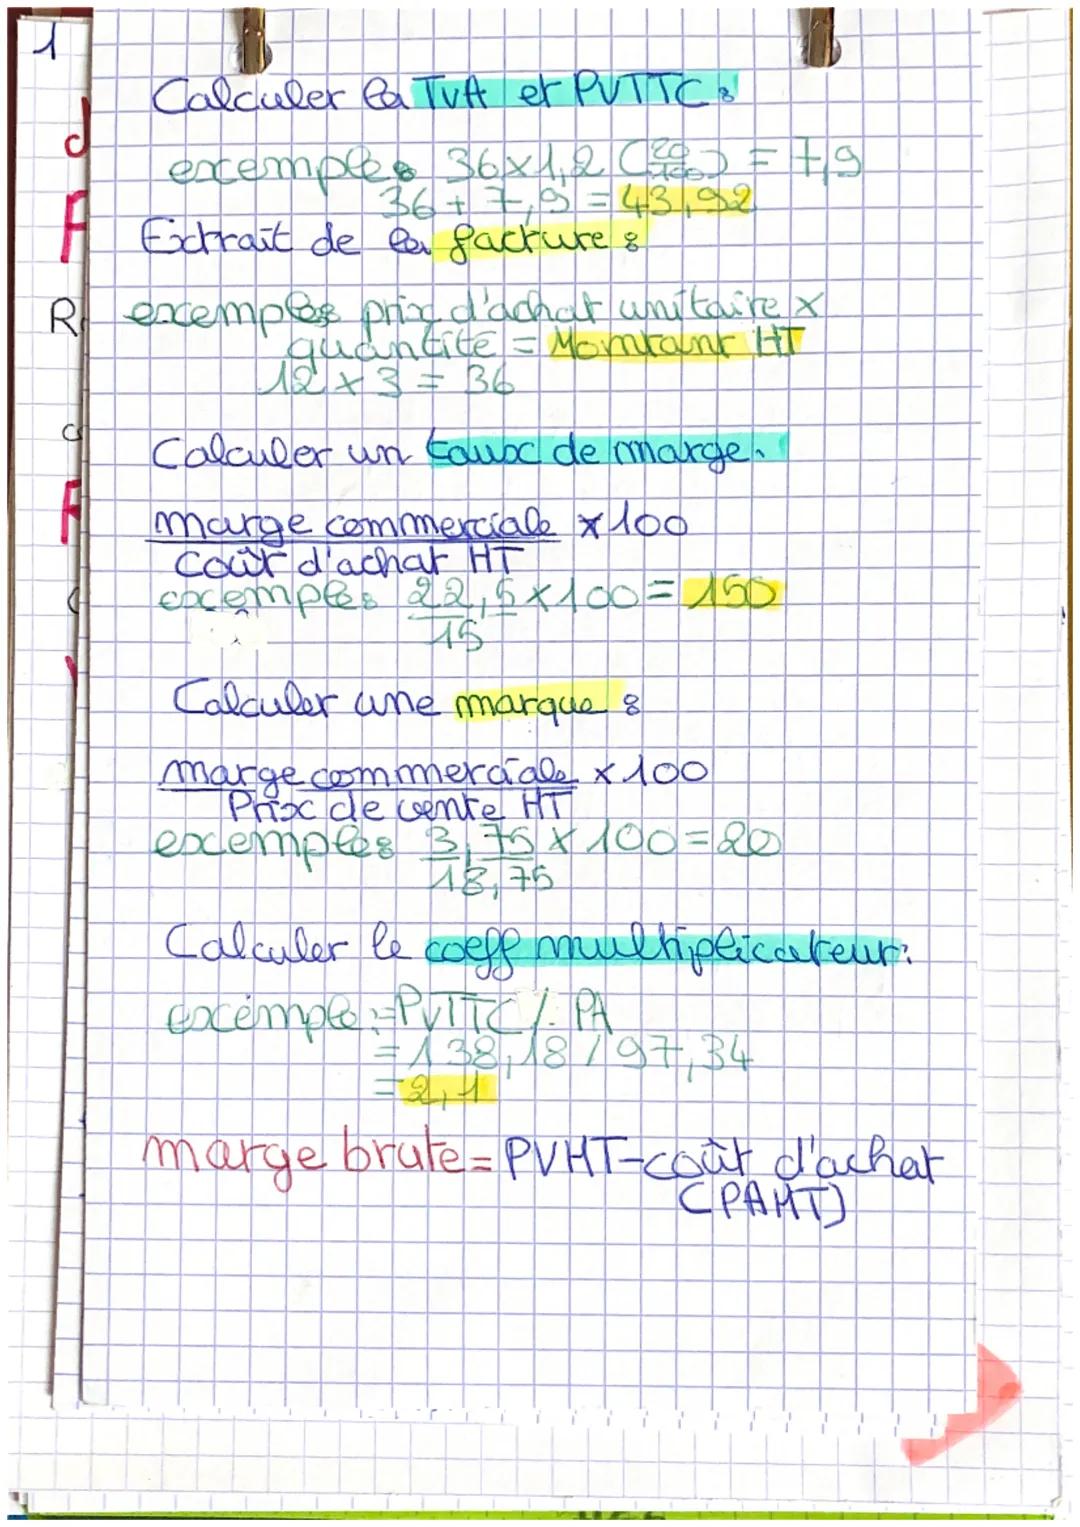 1
Calculer la TVA et PVTTC :
exemple : 36x1,2 (20/100) = 7,9
36 + 7,9 = 43,92
Extrait de la facture :
exemple : prix d'achat unitaire x
quantité = Montant HT
12 x 3 = 36
Calculer un taux de marge.
marge commerciale x 100
Coût d'achat HT
exemple : 22,5 x 100 = 150
15
Calculer une marque :
marge commerciale x 100
Prix de vente HT
exemple : 3,75 x 100 = 20
18,75
Calculer le coeff multiplicateur :
exemple := PVTTC /. PA
= 138,18 / 97,34
= 2,1
marge brute = PVHT - coût d'achat
(PAHT)